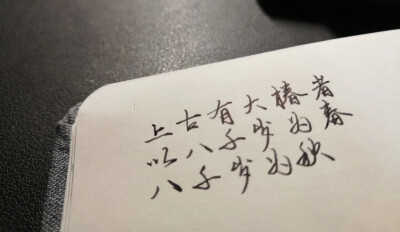 上古有大椿者
以八千岁为春
八千岁为秋